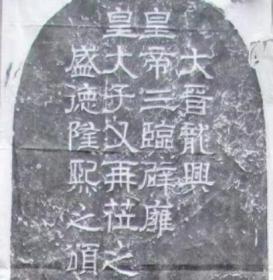 大晋龍興
皇帝三臨辟雍
皇大子又再莅之
盛德隆熙之頌